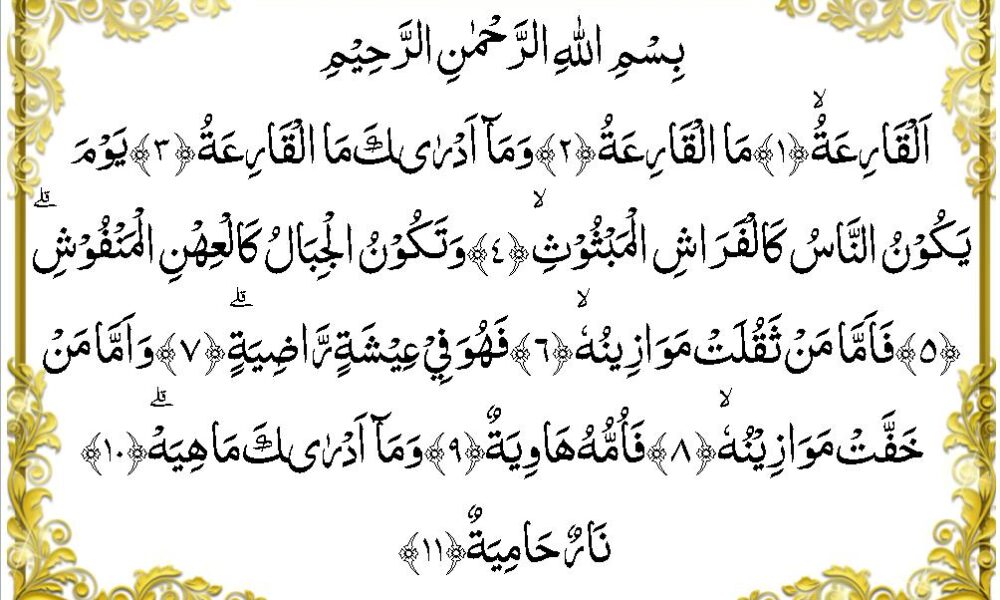 بِسْمِ اللهِ الرَّحْمٰنِ الرَّحِيْمِ
اَلْقَارِعَةُۙ ﴿١﴾ مَا الْقَارِعَةُ ﴿٢﴾ وَمَآ اَدْرٰىكَ مَا الْقَارِعَةُ ﴿٣﴾ يَوْمَ
يَكُوْنُ النَّاسُ كَالْفَرَاشِ الْمَبْثُوْثِۙ ﴿٤﴾ وَتَكُوْنُ الْجِبَالُ كَالْعِهْنِ الْمَنْفُوْشِۗ
﴿٥﴾ فَاَمَّا مَنْ ثَقُلَتْ مَوَازِينُهٗۙ ﴿٦﴾ فَهُوَ فِيْ عِيْشَةٍ رَّاضِيَةٍۗ ﴿٧﴾ وَاَمَّا مَنْ
خَفَّتْ مَوَازِيْنُهٗۙ ﴿٨﴾ فَاُمُّهٗ هَاوِيَةٌ ﴿٩﴾ وَمَآ اَدْرٰىكَ مَا هِيَهْۗ ﴿١٠﴾
نَارٌ حَامِيَةٌ ﴿١١﴾